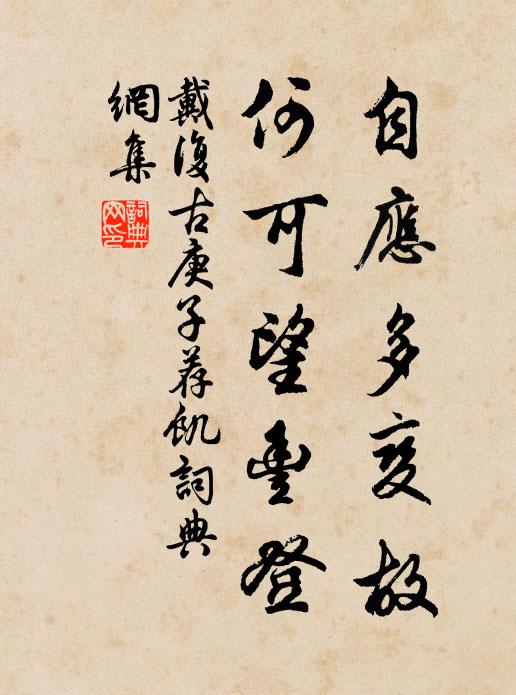 自應多變故
何可望豐登
戴復古庚子荐飢詞典
網集
詞典
网印